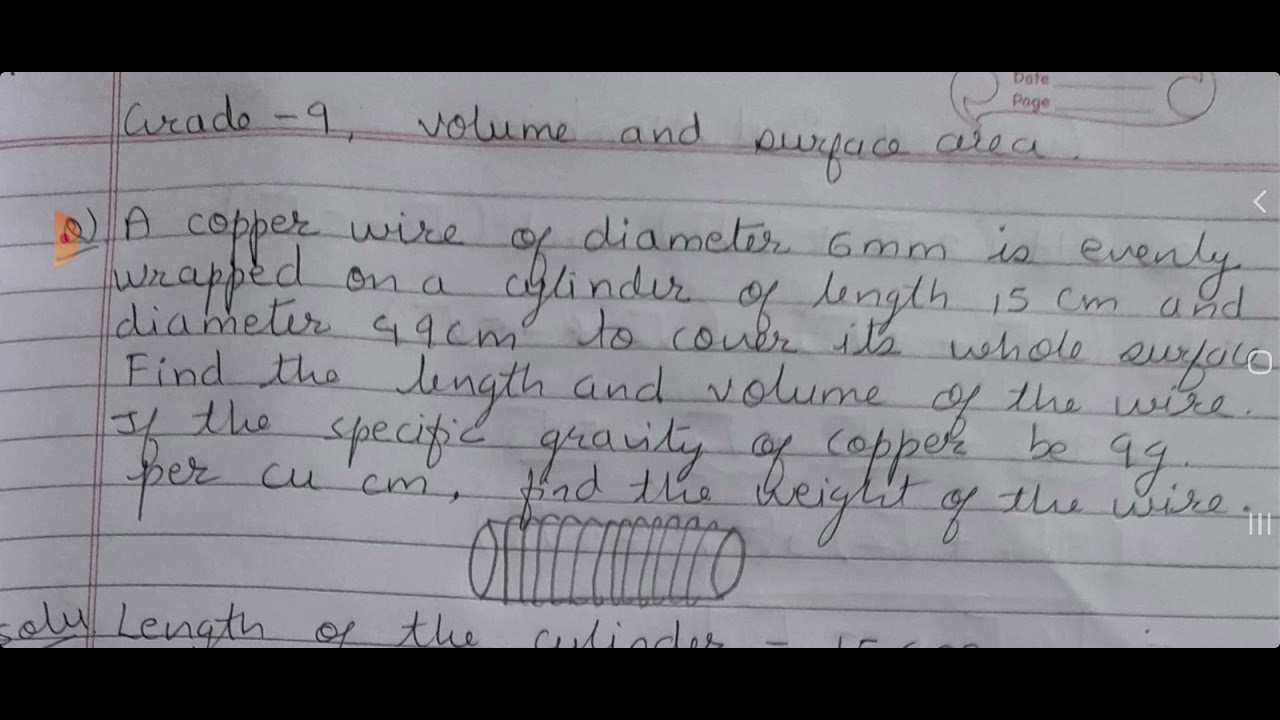 Date
Page
Grade - 9, volume and surface area.
Q) A copper wire of diameter 6mm is evenly
wrapped on a cylinder of length 15 cm and
diameter 49cm to cover its whole surface
Find the length and volume of the wire.
If the specific gravity of copper be 9g.
per cu cm, find the weight of the wire.
Soln Length of the cylinder = 15 cm